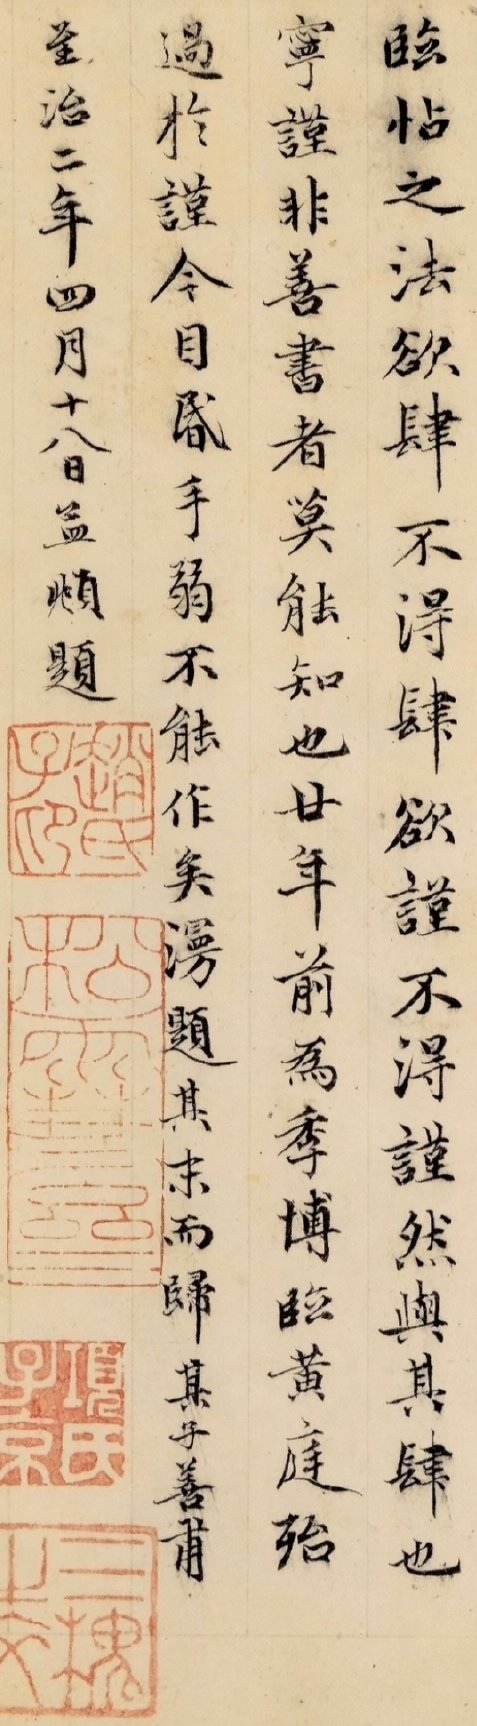 臨帖之法欲肆不得肆欲謹不得謹然與其肆也
寧謹非善書者莫能知也廿年前為季博臨黃庭殆
過於謹今目昏手弱不能作矣漫題其末而歸其子善甫
至治二年四月十八日孟頫題
趙氏子印
松雪齋
項氏子京